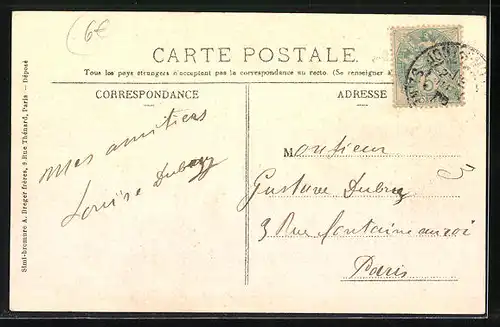 6€
CARTE POSTALE.
Tous les pays étrangers n'acceptent pas la correspondance au recto. (Se renseigner à
CORRESPONDANCE
ADRESSE
mes amitiés
Louise Dubruy
Monsieur
Gustave Dubruy
3 Rue Fontaine au roi
Paris
Simi-bromure A. Breger frères, 9 Rue Thénard, Paris — Déposé